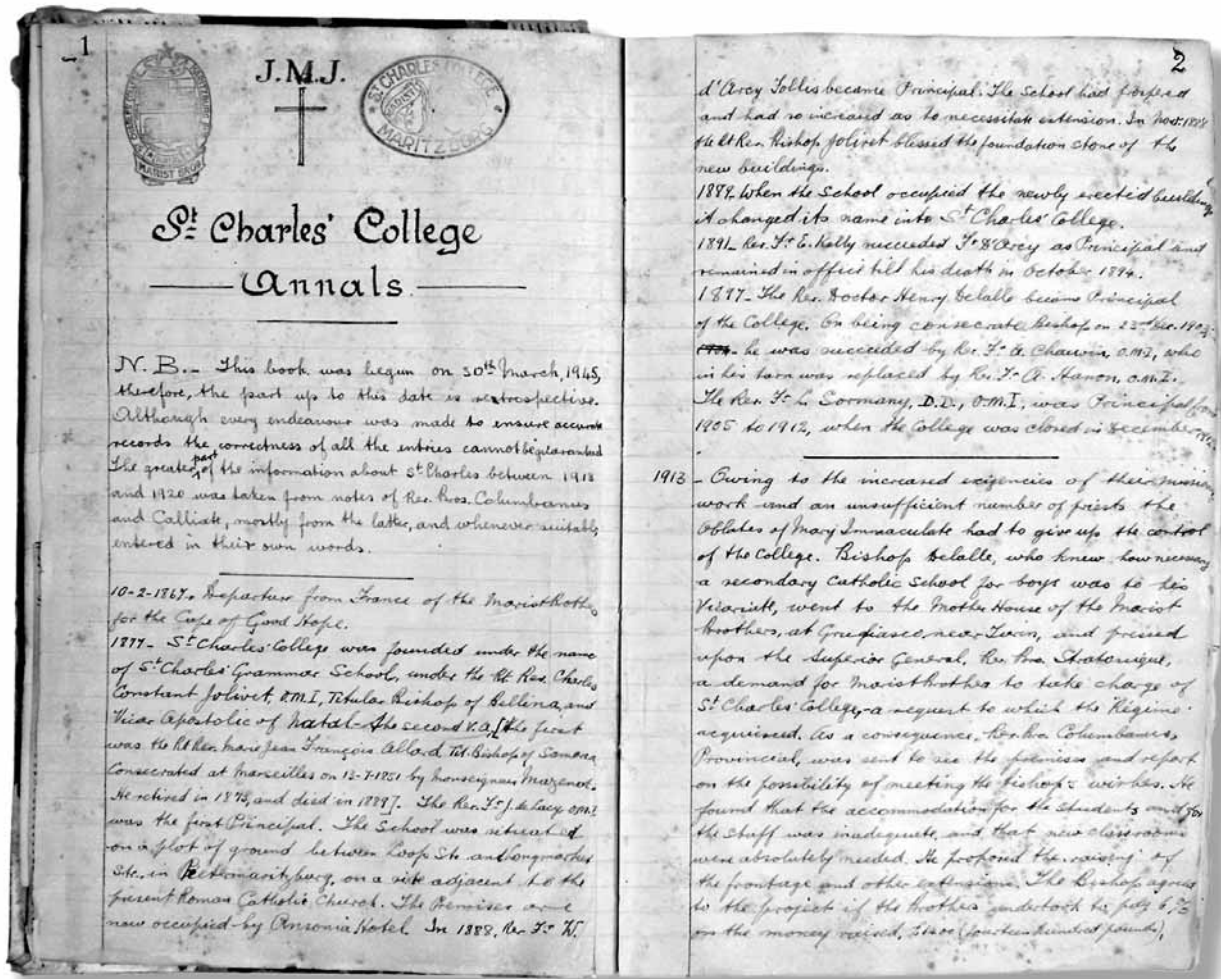 1
J.M.J.
ST. CHARLES COLLEGE
MARITZBURG
MARIST BROS
St Charles' College
Annals
N.B. - This book was begun on 30th March, 1945,
therefore, the part up to this date is restrospective.
Although every endeavour was made to ensure accurate
records the correctness of all the entries cannot be guaranteed
The greater part of the information about St Charles between 1918
and 1920 was taken from notes of Rev. Bros. Columbanus
and Calliste, mostly from the latter, and whenever suitable,
entered in their own words.
10-2-1867. Departure from France of the Marist Brothers
for the Cape of Good Hope.
1877- St Charles' College was founded under the name
of St Charles' Grammar School, under the Rt Rev. Charles
Constant Jolivet, O.M.I, Titular Bishop of Bellina, and
Vicar Apostolic of Natal - the second V.A, [the first
was the Rt Rev. Marie Jean François Allard Tit. Bishop of Samaria
Consecrated at Marseilles on 13-7-1851 by Monseigneur Mazenod.
He retired in 1873, and died in 1889]. The Rev. Fr J. de Lacy O.M.I
was the first Principal. The School was situated
on a plot of ground between Loop Str. and Longmarket
Str. in Pietermaritzburg, on a site adjacent to the
present Roman Catholic Church. The Premises are
now occupied by Ansonia Hotel. In 1888, Rev Fr W.
2
d'Arcy Tollis became Principal. The School had prospered
and had so increased as to necessitate extension. In Nov. 1888
the Rt Rev. Bishop Jolivet blessed the foundation stone of the
new buildings.
1889. When the School occupied the newly erected buildings
it changed its name into St Charles' College.
1891- Rev. Fr E. Kelly succeeded Fr D'Arcy as Principal and
remained in office till his death in October 1894.
1897- The Rev. Doctor Henry Delalle became Principal
of the College. On being consecrate Bishop on 23rd Dec. 1903
he was succeeded by Rev. Fr A. Chauvin, O.M.I, who
in his turn was replaced by Rev. Fr A. Hanon, O.M.I.
The Rev. Fr L. Sormany, D.D., O.M.I, was Principal from
1905 to 1912, when the College was closed in December 1912.
1913 - Owing to the increased exigencies of their mission
work and an unsufficient number of priests the
Oblates of Mary Immaculate had to give up the control
of the College. Bishop Delalle, who knew how necessary
a secondary Catholic School for boys was to his
Vicariate, went to the Mother House of the Marist
Brothers, at Grugliasco, near Turin, and pressed
upon the Superior General, Rev. Bro. Stratonique,
a demand for Marist Brothers to take charge of
St Charles' College, - a request to which the Régime
acquiesced. As a consequence, Rev. Bro. Columbanus,
Provincial, was sent to see the premises and report
on the possibility of meeting the bishop's wishes. He
found that the accommodation for the students and for
the staff was inadequate, and that new classrooms
were absolutely needed. He proposed the raising of
the frontage and other extensions. The Bishop agreed
to the project if the Brothers undertook to pay 6%
on the money raised, £1400 (fourteen hundred pounds),